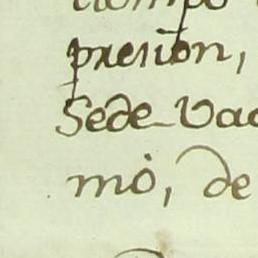 presion,
Sede Vac
mò, de